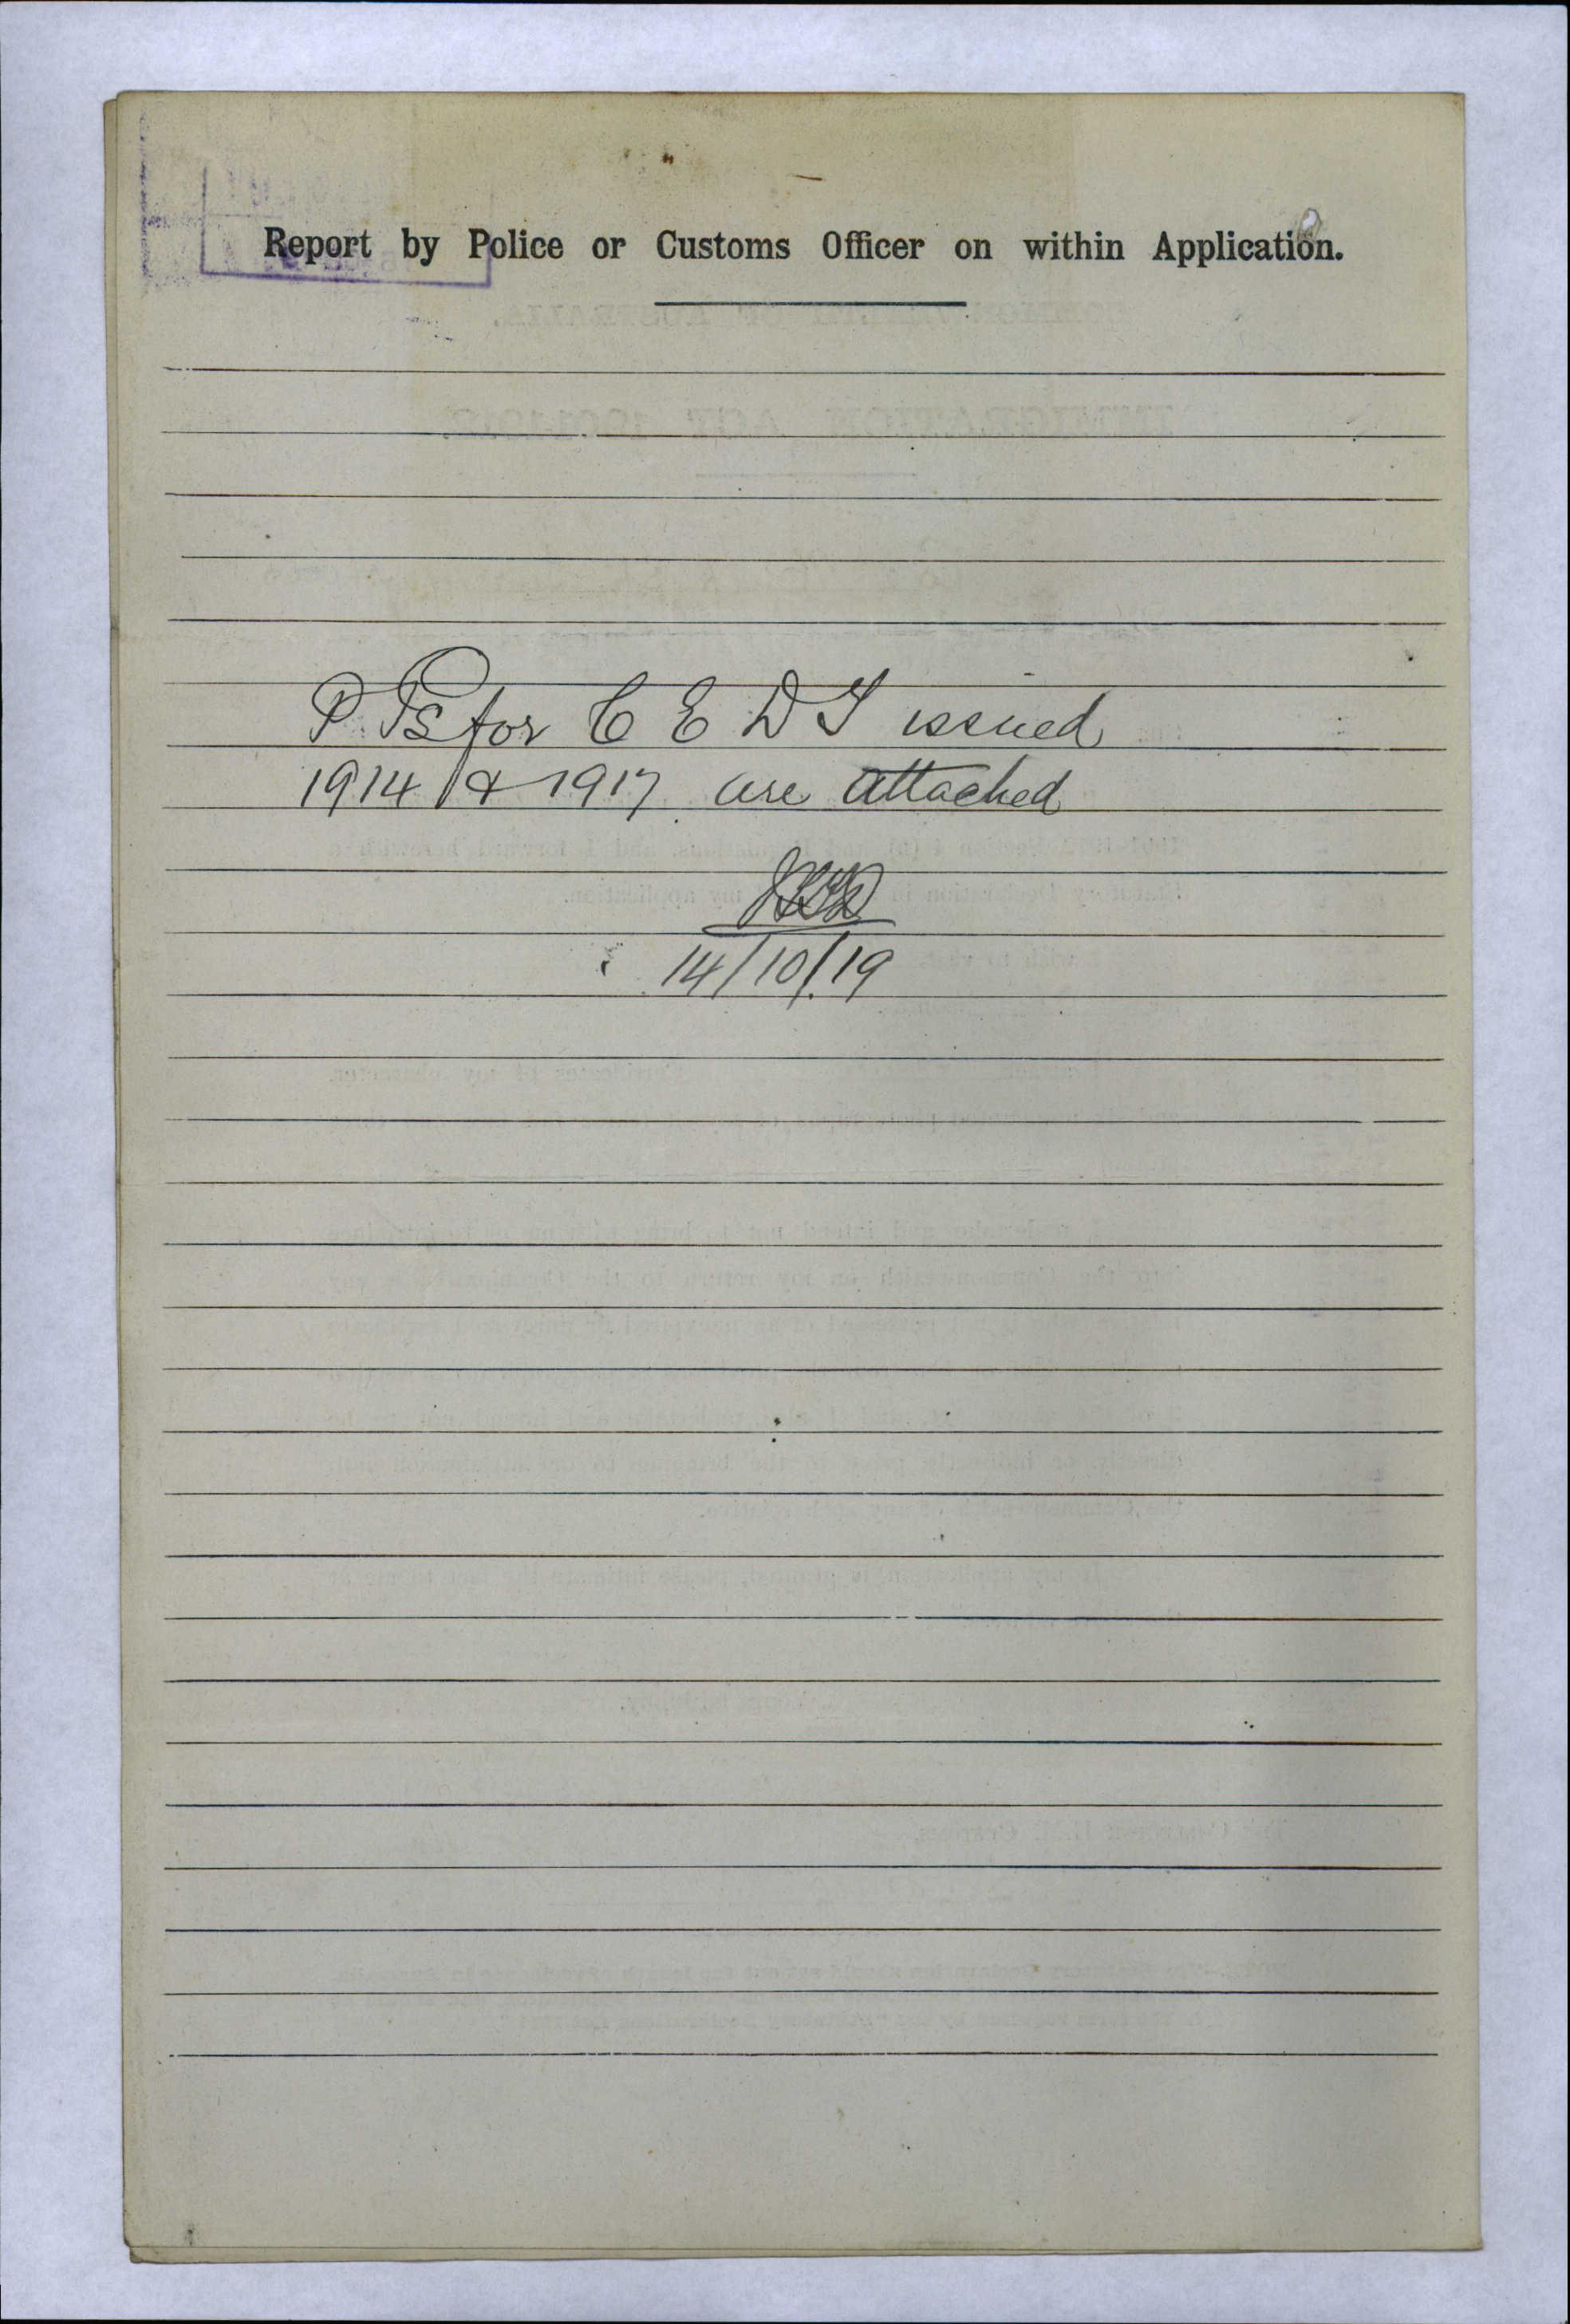 Report by Police or Customs Officer on within Application.
P Ps for C E D T issued
1914 & 1917 are attached
14/10/19